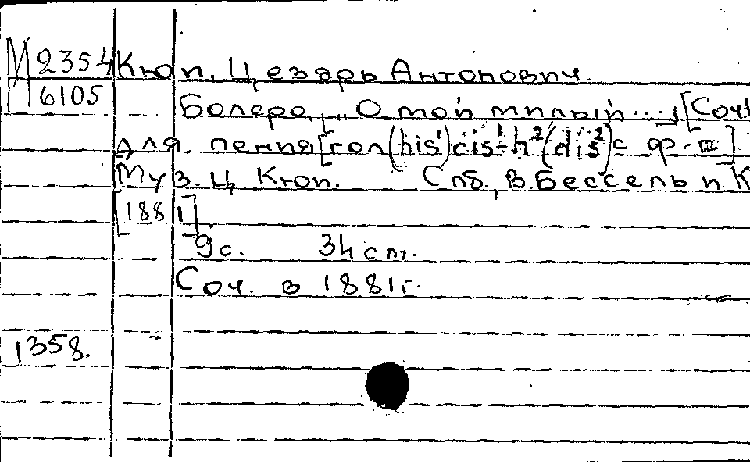 М 2354 Кюи, Цезарь Антонович.
6105
Болеро. „О мой милый...„ [Соч.
для пения [гол(his¹)cis¹-h²(dis²)с ф-п]
Муз. Ц. Кюи. Спб., В. Бессель и К
[1881]
9 с. 34 см.
Соч. в 1881 г.
1358.